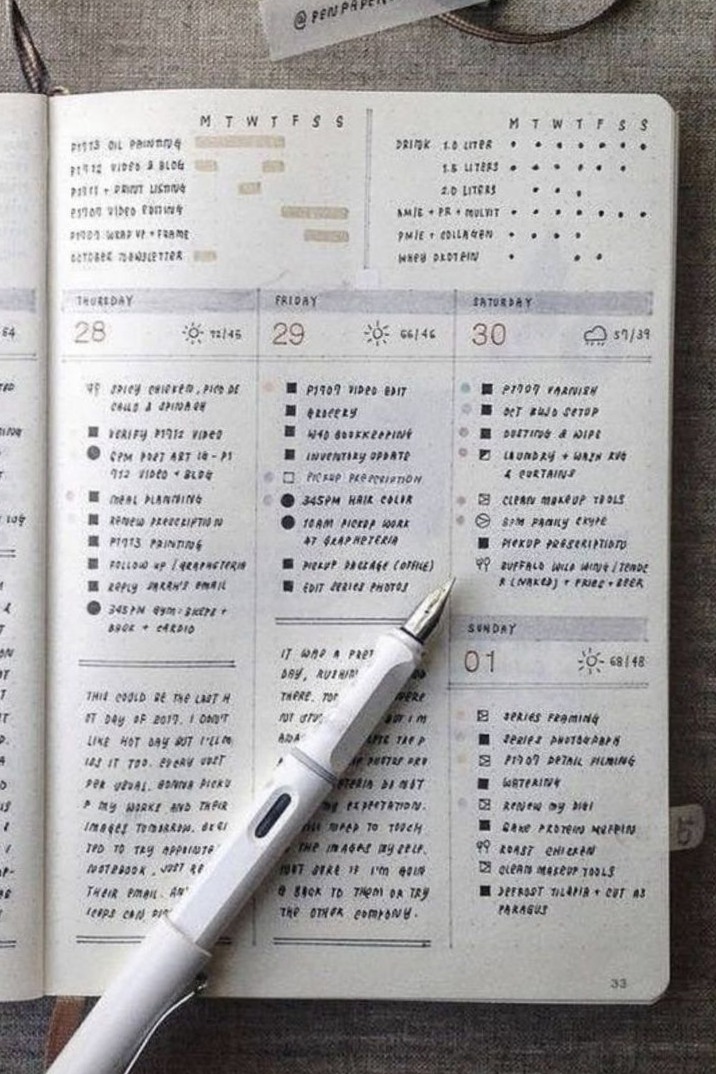 @PENPAPE
M T W T F S S
P1713 OIL PAINTING
P1712 VIDEO & BLOG
P1711 + PRINT LISTING
P1707 VIDEO EDITING
P1707 WRAP UP + FRAME
OCTOBER NEWSLETTER
M T W T F S S
DRINK 1.0 LITER
1.5 LITERS
2.0 LITERS
AM/E + PR + MULVIT
PM/E + COLLAGEN
WHEY PROTEIN
64
THURSDAY
28
72/45
SPICY CHICKEN, PICO DE
GALLO & SPINACH
VERIFY P1712 VIDEO
6PM POST ART IG - P1
712 VIDEO + BLOG
MEAL PLANNING
RENEW PRESCRIPTION
P1713 PAINTING
FOLLOW UP / GRAPHETERIA
REPLY SARAH'S EMAIL
345PM GYM: BICEPS +
BACK + CARDIO
THIS COULD BE THE LAST H
OT DAY OF 2017. I DON'T
LIKE HOT DAY BUT I'LL M
ISS IT TOO. EVERY JUST
PER USUAL. GONNA PICKU
P MY WORKS AND THEIR
IMAGES TOMORROW.
TED TO TRY
NOTEBOOK, JUST
THEIR EMAIL.
CAN
FRIDAY
29
66/46
P1707 VIDEO EDIT
GROCERY
W40 BOOKKEEPING
INVENTORY UPDATE
PICKUP PRESCRIPTION
345PM HAIR COLOR
10AM PICKUP WORK
AT GRAPHETERIA
PICKUP PACKAGE (OFFICE)
EDIT SERIES PHOTOS
IT WAS A
DAY,
THERE.
BUT I'M
DO NOT
MY EXPECTATION.
NEED TO TOUCH
THE IMAGES MYSELF.
NOT SURE IF I'M GOIN
G BACK TO THEM OR TRY
THE OTHER COMPANY.
SATURDAY
30
57/39
P1707 VARNISH
OCT BUJO SETUP
DUSTING & WIPE
LAUNDRY + WASH RUG
& CURTAINS
CLEAN MAKEUP TOOLS
8PM FAMILY SKYPE
PICKUP PRESCRIPTION
BUFFALO WILD WING (TENDE
R (NAKED) + FRIES + BEER
SUNDAY
01
68/48
SERIES FRAMING
SERIES PHOTOGRAPH
P1707 DETAIL FILMING
WATERING
RENEW MY DIGI
BAKE PROTEIN MUFFIN
ROAST CHICKEN
CLEAN MAKEUP TOOLS
DEFROST TILAPIA + CUT AS
PARAGUS
33